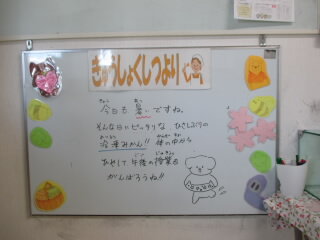 きゅうしょくしつより
今日も暑いですね。
そんな日にピッタリな ひさしぶりの
冷凍みかん!! 体の中から
ひやして午後の授業も
がんばろうね!!